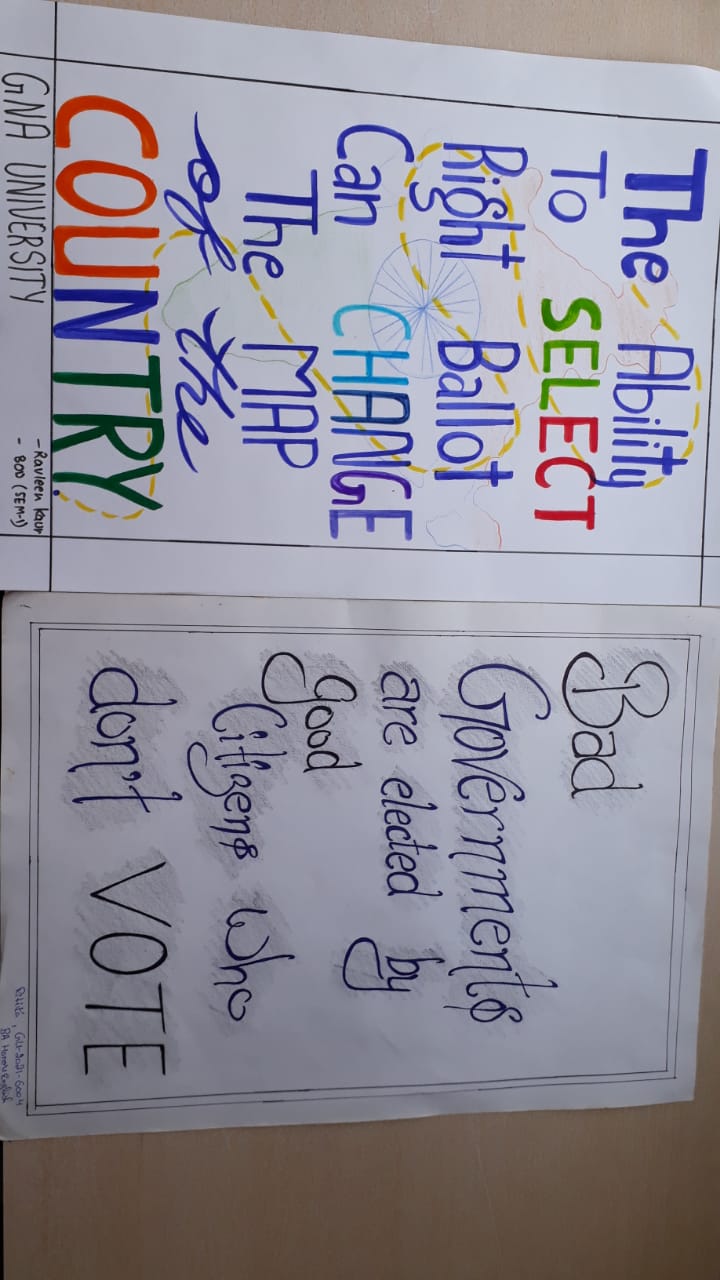 The Ability
To SELECT
Right Ballot
Can CHANGE
The MAP
of the
COUNTRY.
GNA UNIVERSITY
- Ravleen Kaur
- BOD (SEM-1)
Bad
Governments
are elected by
good
Citizens who
don't VOTE
GU-2021-6004
BA Honors English